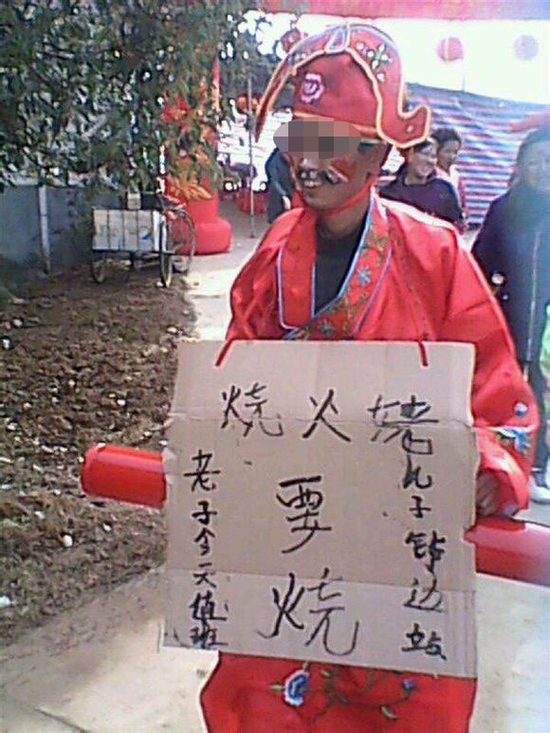 烧火
儿子边站
要烧
老子今天值班